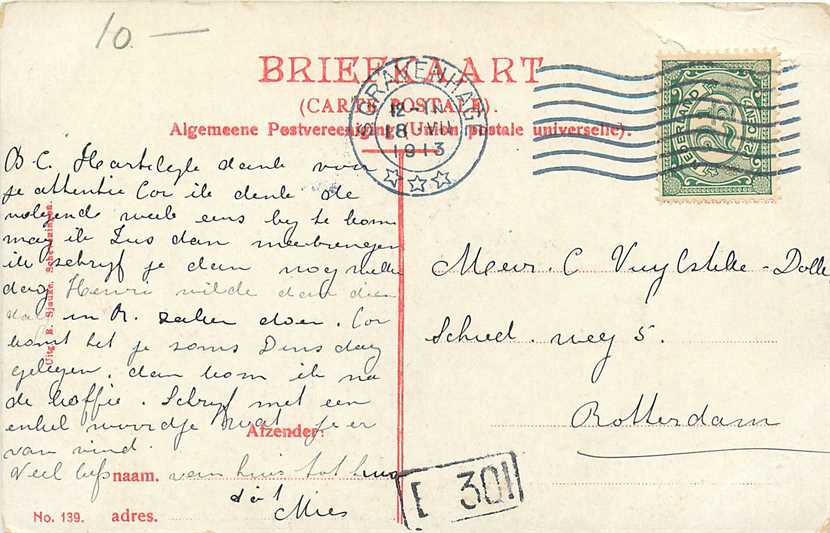 10.—
BRIEFKAART
(CARTE POSTALE).
Algemeene Postvereeniging (Union postale universelle).
'S GRAVENHAGE
12-1 N
18 VII
1913
NEDERLAND
2½
B C. Hartelijk dank voor
je attentie Cor ik denk de
volgende week eens bij te kom
mag ik Zus dan meebrengen
ik schrijf je dan nog welke
dag Henri wilde dan dien
dag in R. zaken doen. Cor
komt het je soms Dinsdag
gelegen, dan kom ik na
de koffie. Schrijf met een
enkel woordje wat je er
van vind.
Afzender:
Veel liefs van huis tot huis
naam.
dat Mies
No. 139. adres.
Uitg. R. Sjouke, Scheveningen.
Mevr. C Vuylsteke-Dolle
Schied. weg 5.
Rotterdam
E 301